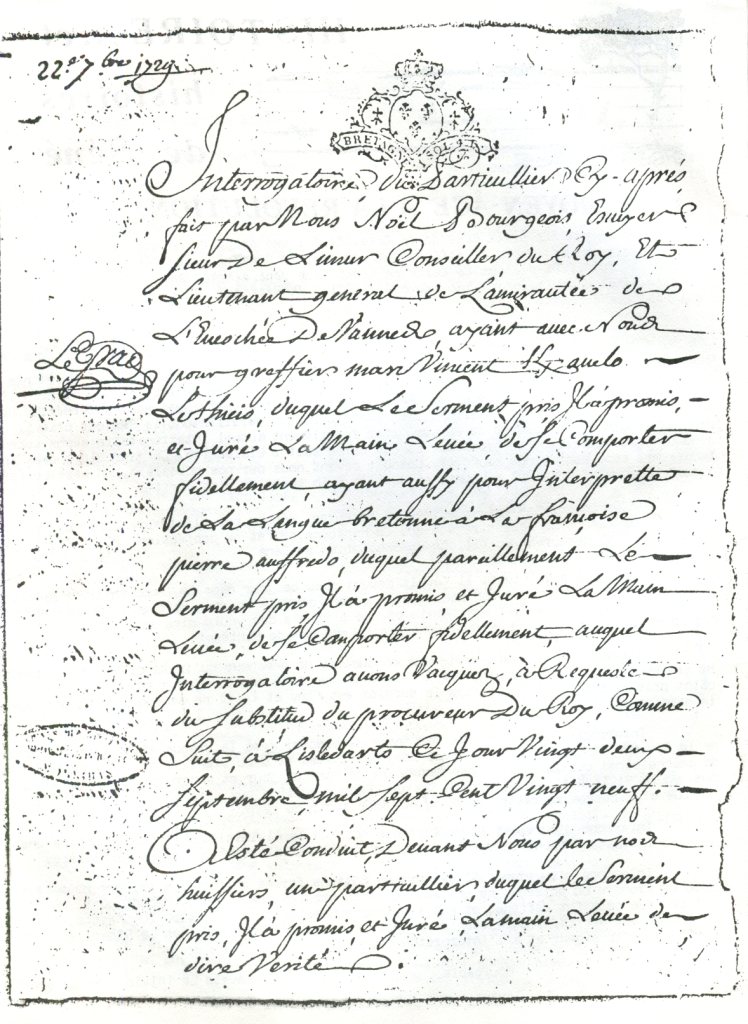 22e 7bre 1729
BRETAGNE SOL
Interrogatoire du Particullier Cy-aprés
fait par Nous Noël Bourgeois, Escuyer
sieur De Limur Conseiller du Roy, Et
Lieutenant general de L'amirautée de
L'Evechée De Vannes, ayant avec Nous
Le Gras
pour greffier marc Vincent
Lethieis, duquel Le Serment pris, Il a promis,
et Juré La Main Levée, de se Comporter
fidellement, ayant aussy pour Interprette
de La Langue bretonne à La françoise
pierre auffredo, duquel pareillement Le
Serment pris, Il a promis et Juré La Main
Levée, de se Comporter fidellement, auquel
Interrogatoire avons Vacquez, à Requeste
du Substitud du procureur Du Roy, Comme
Suit, à Lisledarts Ce Jour Vingt deux
Septembre, mil Sept Cent Vingt neuff.
A Esté Conduit, Devant Nous par nos
huissiers, un particullier, duquel le Serment
pris, Il a promis, et Juré, La main Levée de
dire Verité.